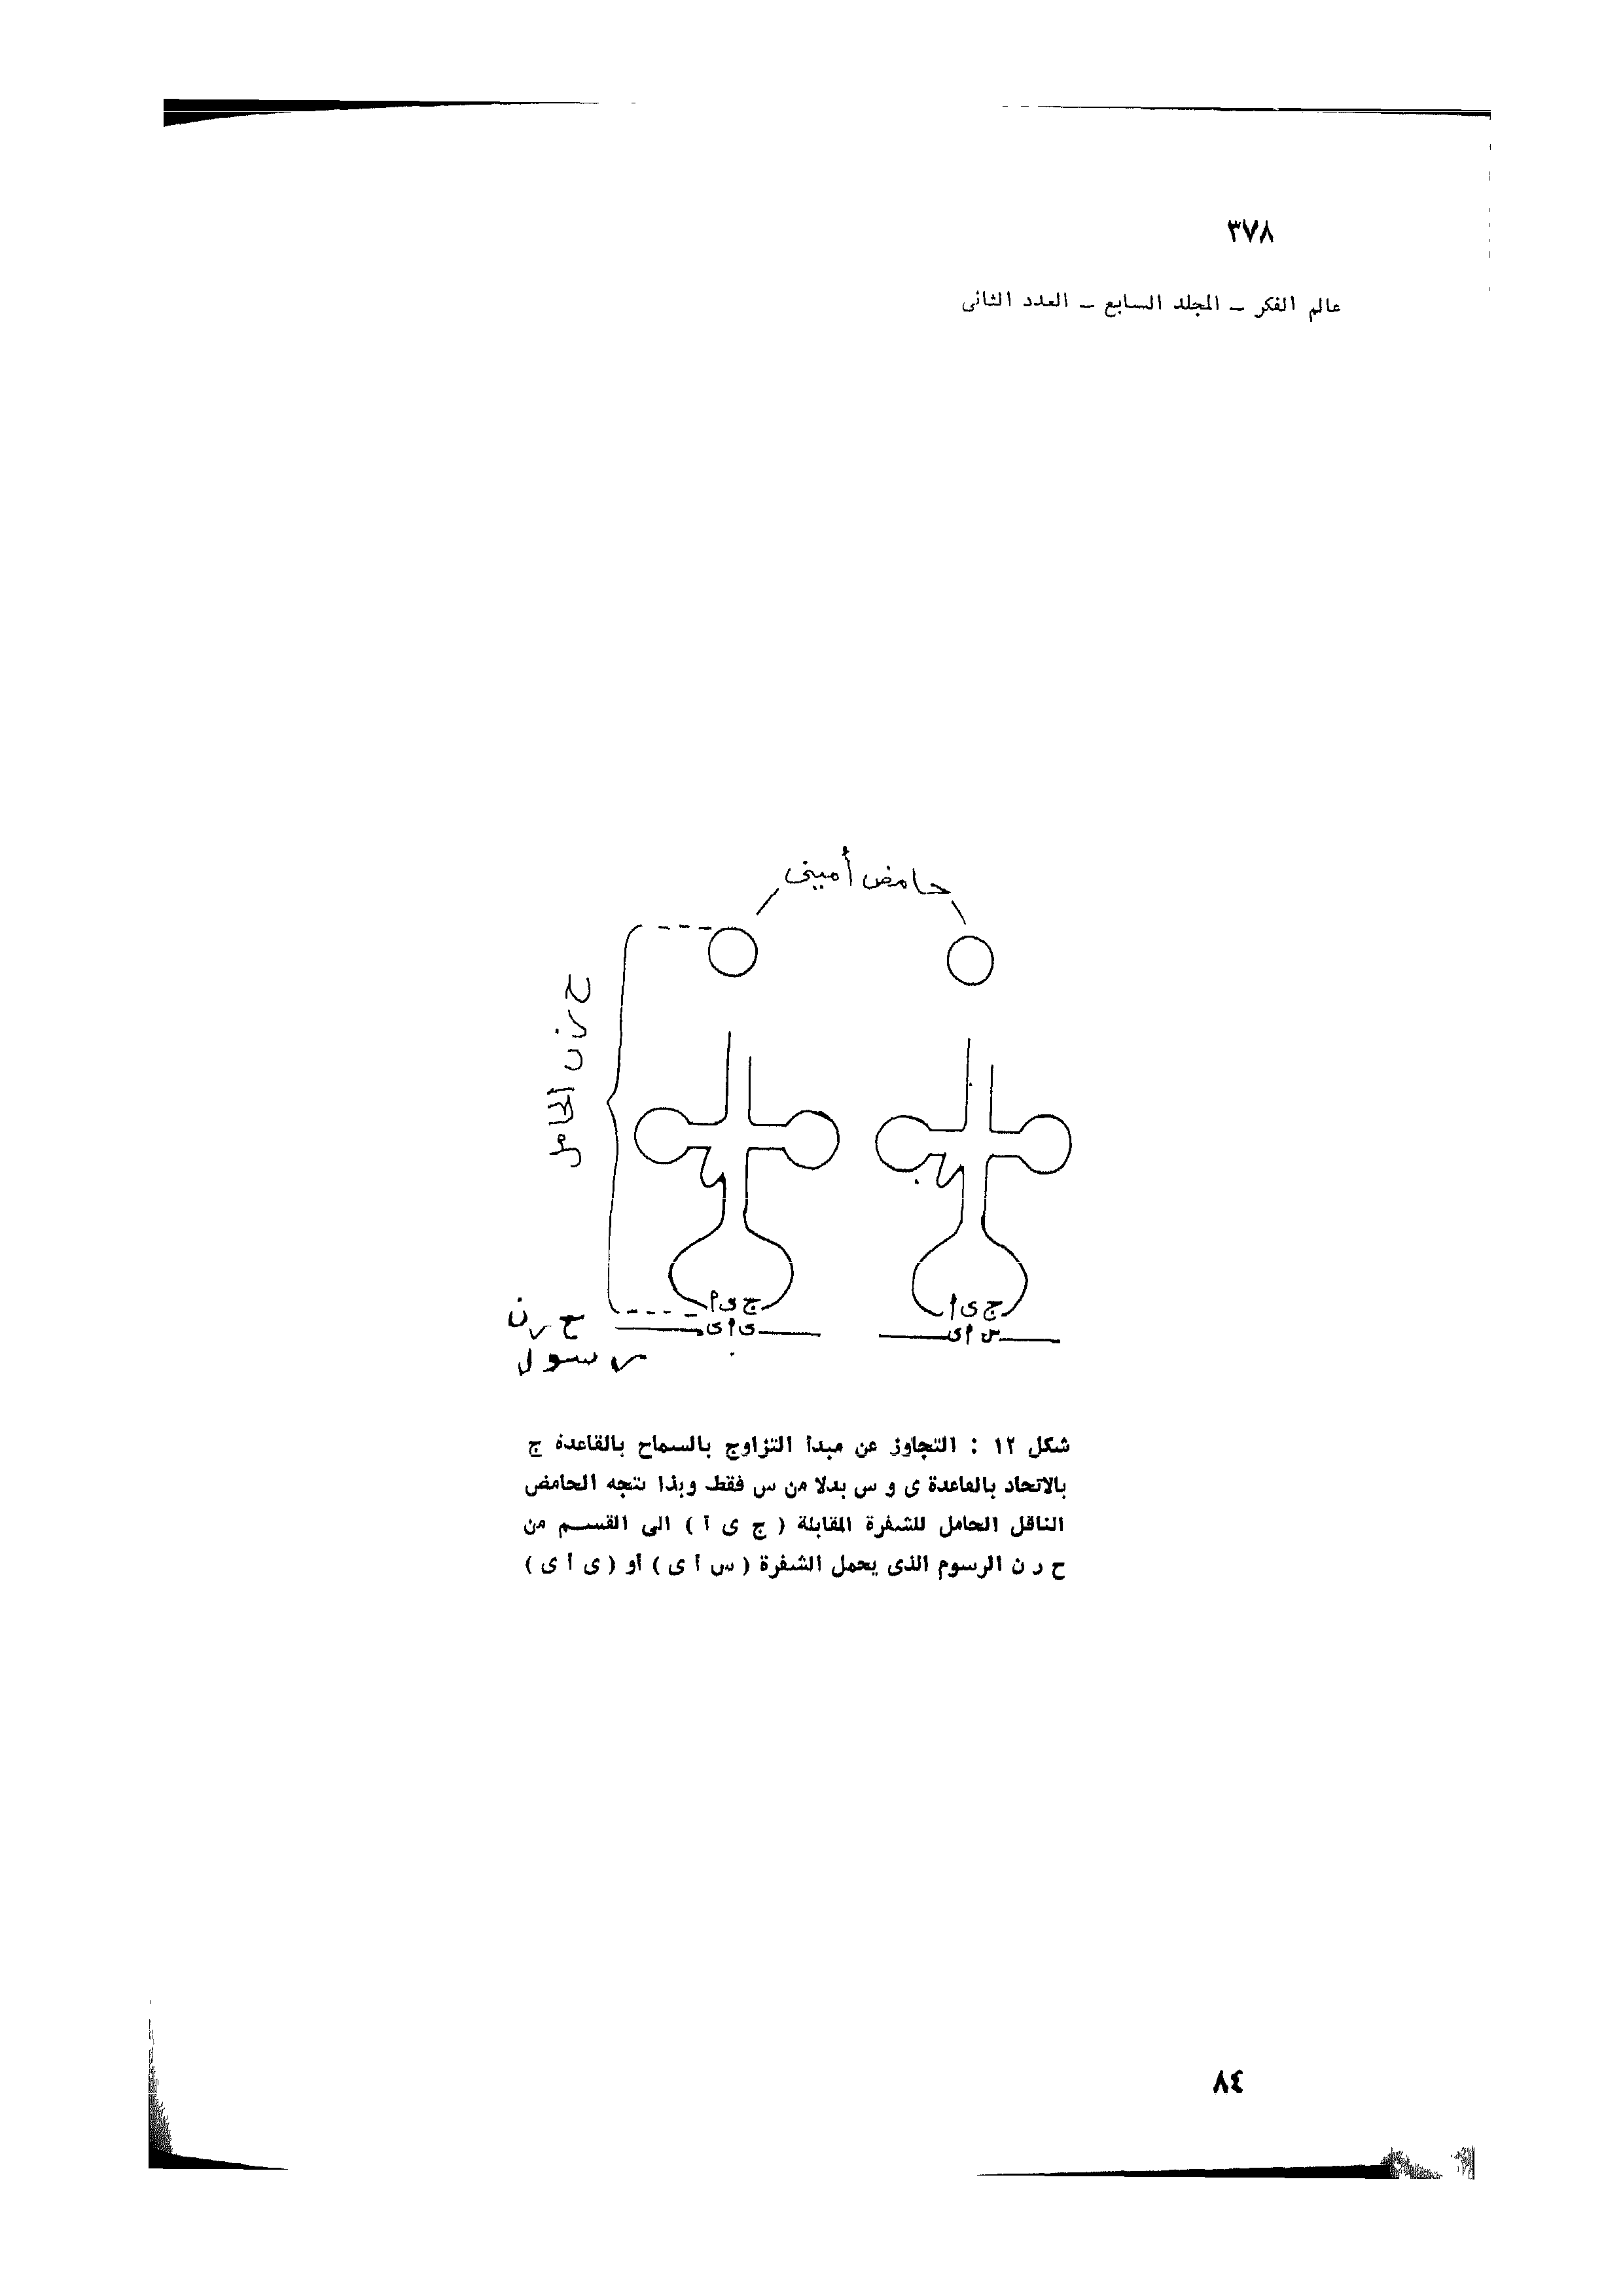 ٣٧٨
عالم الفكر ــ المجلد السابع ــ العدد الثانى
حامض أمينى
ح ر ن الحامل
ج ى أ
ج ى أ
ى أ ى
س أ ى
ح ر ن
رسول
شكل ١٢ : التجاوز عن مبدأ التزاوج بالسماح بالقاعدة ج
بالاتحاد بالقاعدة ى و س بدلا من س فقط وبذا تتجه الحامض
الناقل الحامل للشفرة المقابلة ( ج ى أ ) الى القسم من
ح ر ن الرسوم الذى يحمل الشفرة ( س أ ى ) أو ( ى أ ى )
٨٤